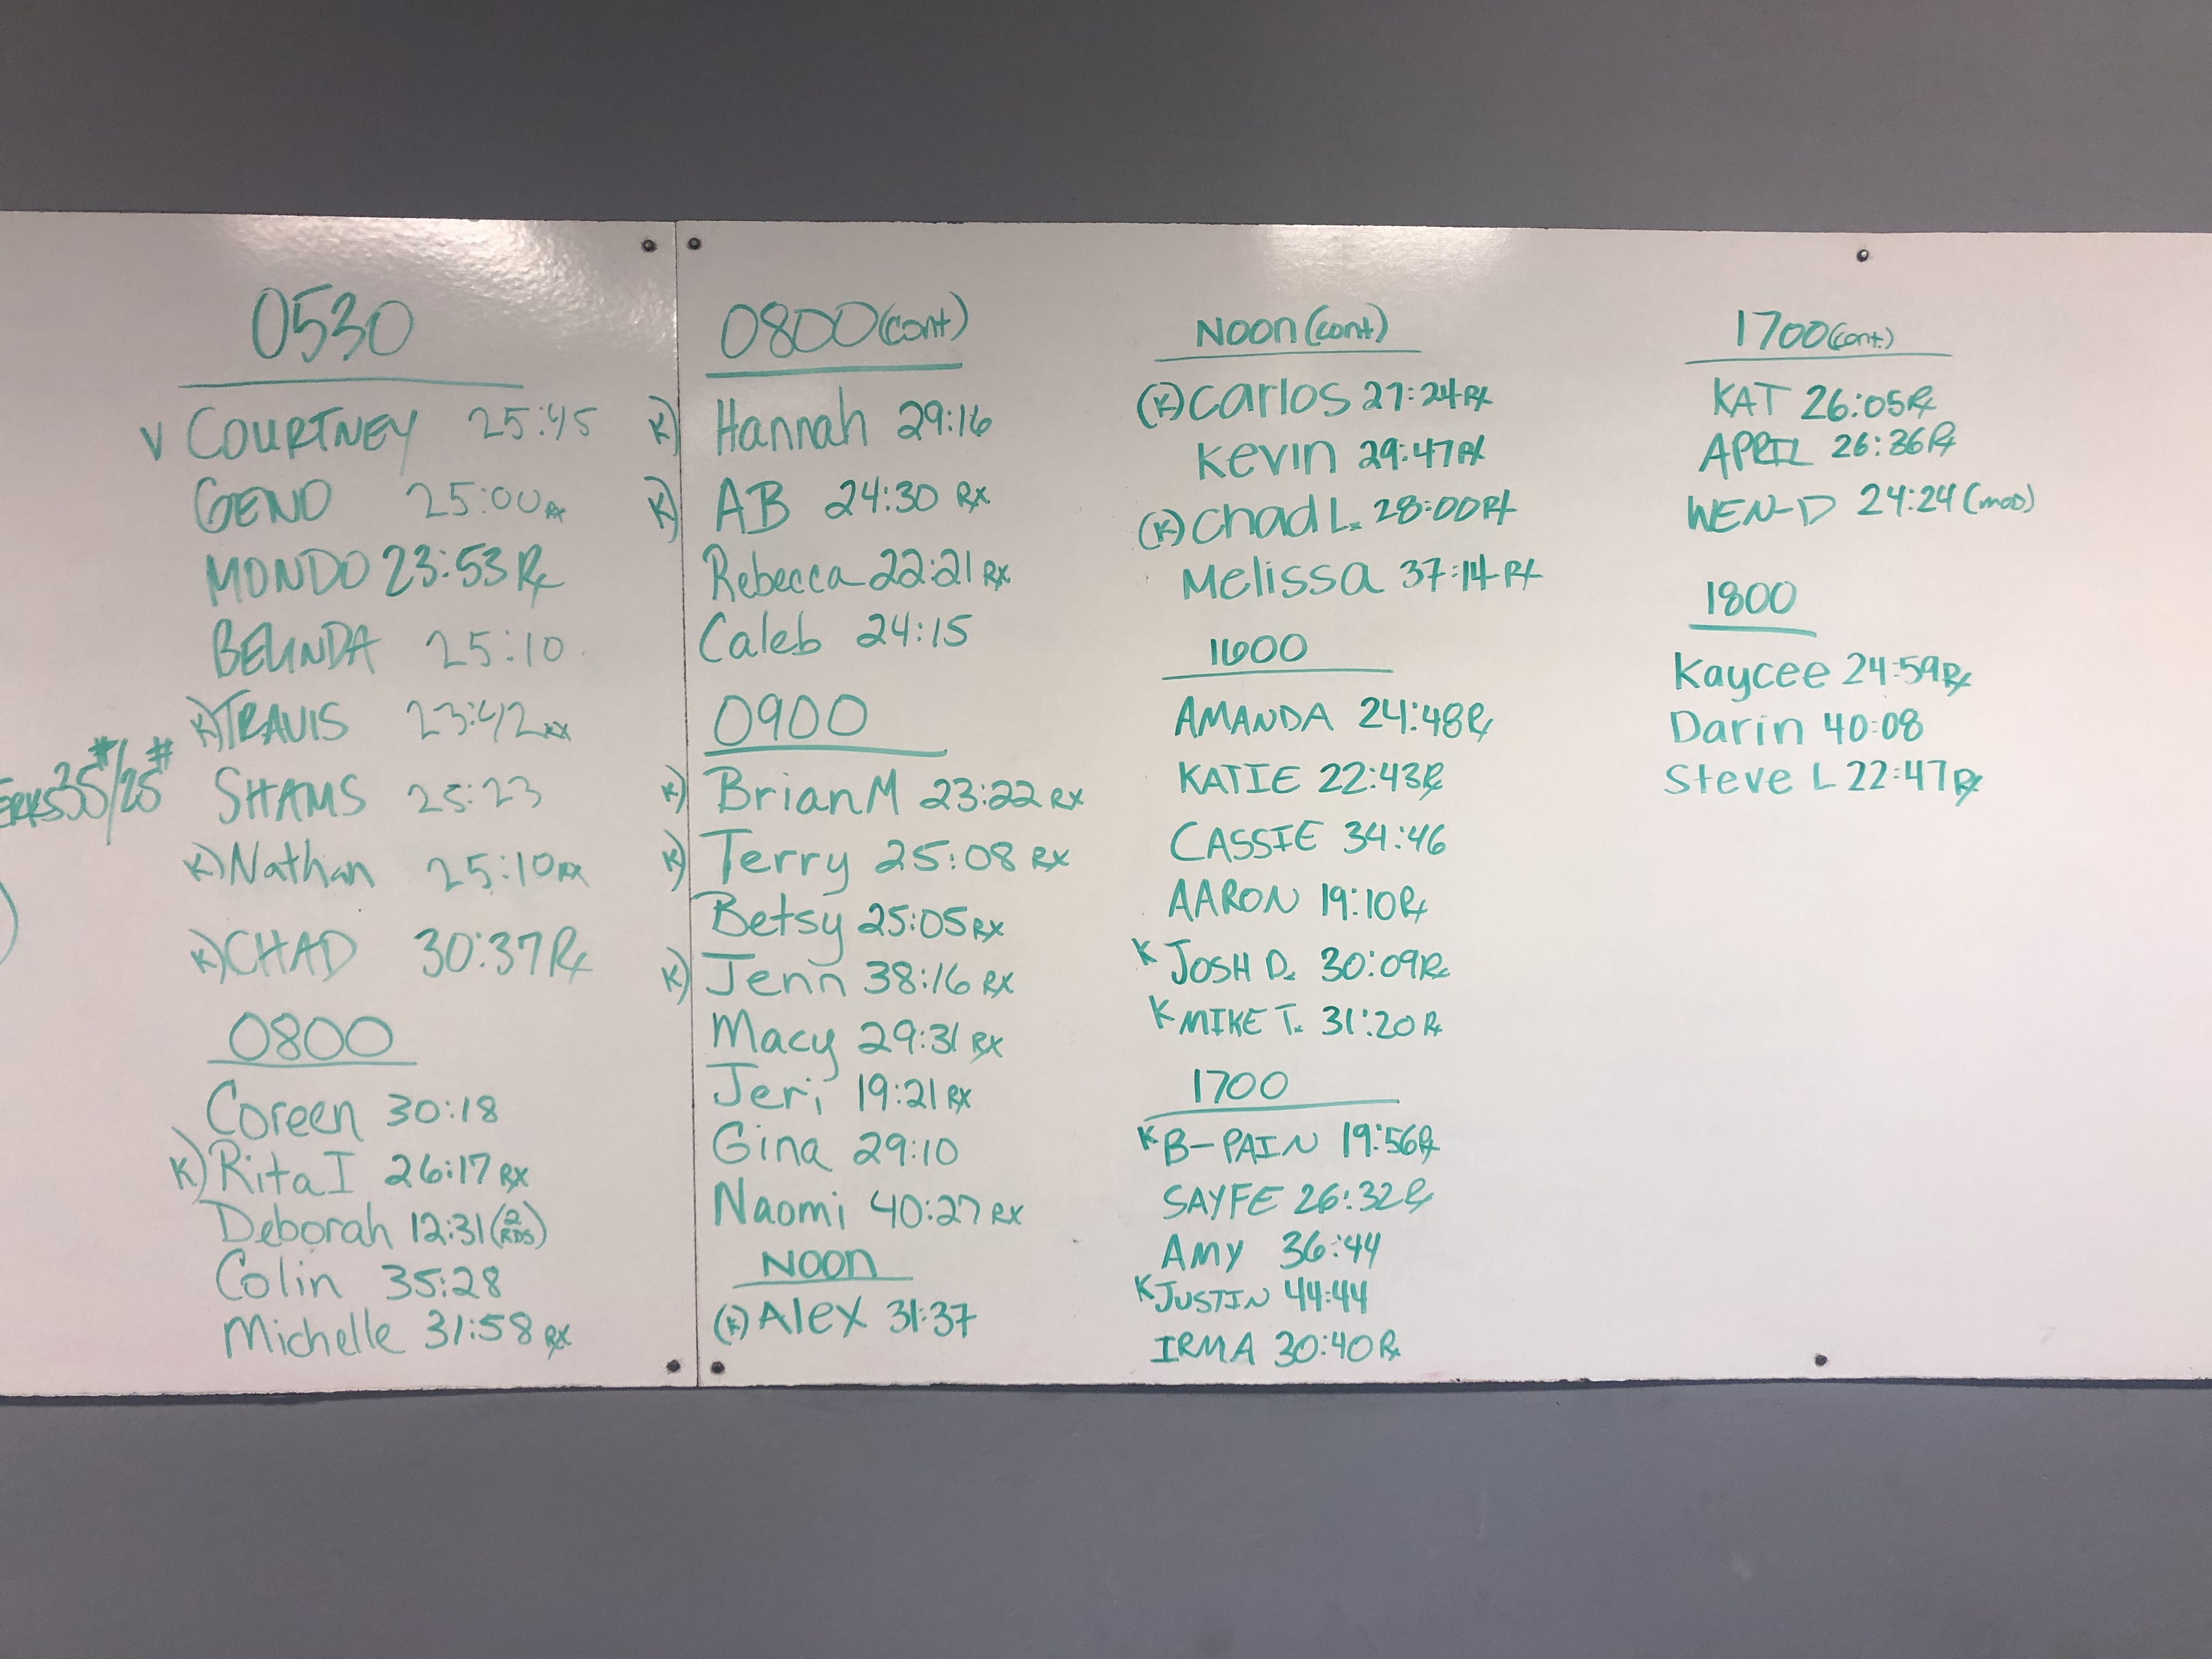 0530
V COURTNEY 25:45
GENO 25:00 RX
MONDO 23:53 Rx
BELINDA 25:10
K) TRAVIS 23:42 RX
SHAMS 25:23
35#/25#
K) Nathan 25:10 RX
K) CHAD 30:37 Rx
0800
Coreen 30:18
K) Rita I 26:17 RX
Deborah 12:31 (2 RDS)
Colin 35:28
Michelle 31:58 RX
0800 (cont)
K) Hannah 29:16
K) AB 24:30 RX
Rebecca 22:21 RX
Caleb 24:15
0900
K) Brian M 23:22 RX
K) Terry 25:08 RX
Betsy 25:05 RX
K) Jenn 38:16 RX
Macy 29:31 RX
Jeri 19:21 RX
Gina 29:10
Naomi 40:27 RX
NOON
(K) Alex 31:37
NOON (cont)
(K) Carlos 27:24 RX
Kevin 29:47 RX
(K) Chad L. 28:00 RX
Melissa 37:14 RX
1600
AMANDA 24:48 Rx
KATIE 22:43 Rx
CASSIE 34:46
AARON 19:10 Rx
K JOSH D. 30:09 Rx
K MIKE T. 31:20 Rx
1700
K B-PAIN 19:56 Rx
SAYFE 26:32 Rx
AMY 36:44
K JUSTIN 44:44
IRMA 30:40 Rx
1700 (cont.)
KAT 26:05 Rx
APRIL 26:36 Rx
WEN-D 24:24 (mod)
1800
Kaycee 24:59 Rx
Darin 40:08
Steve L 22:47 Rx